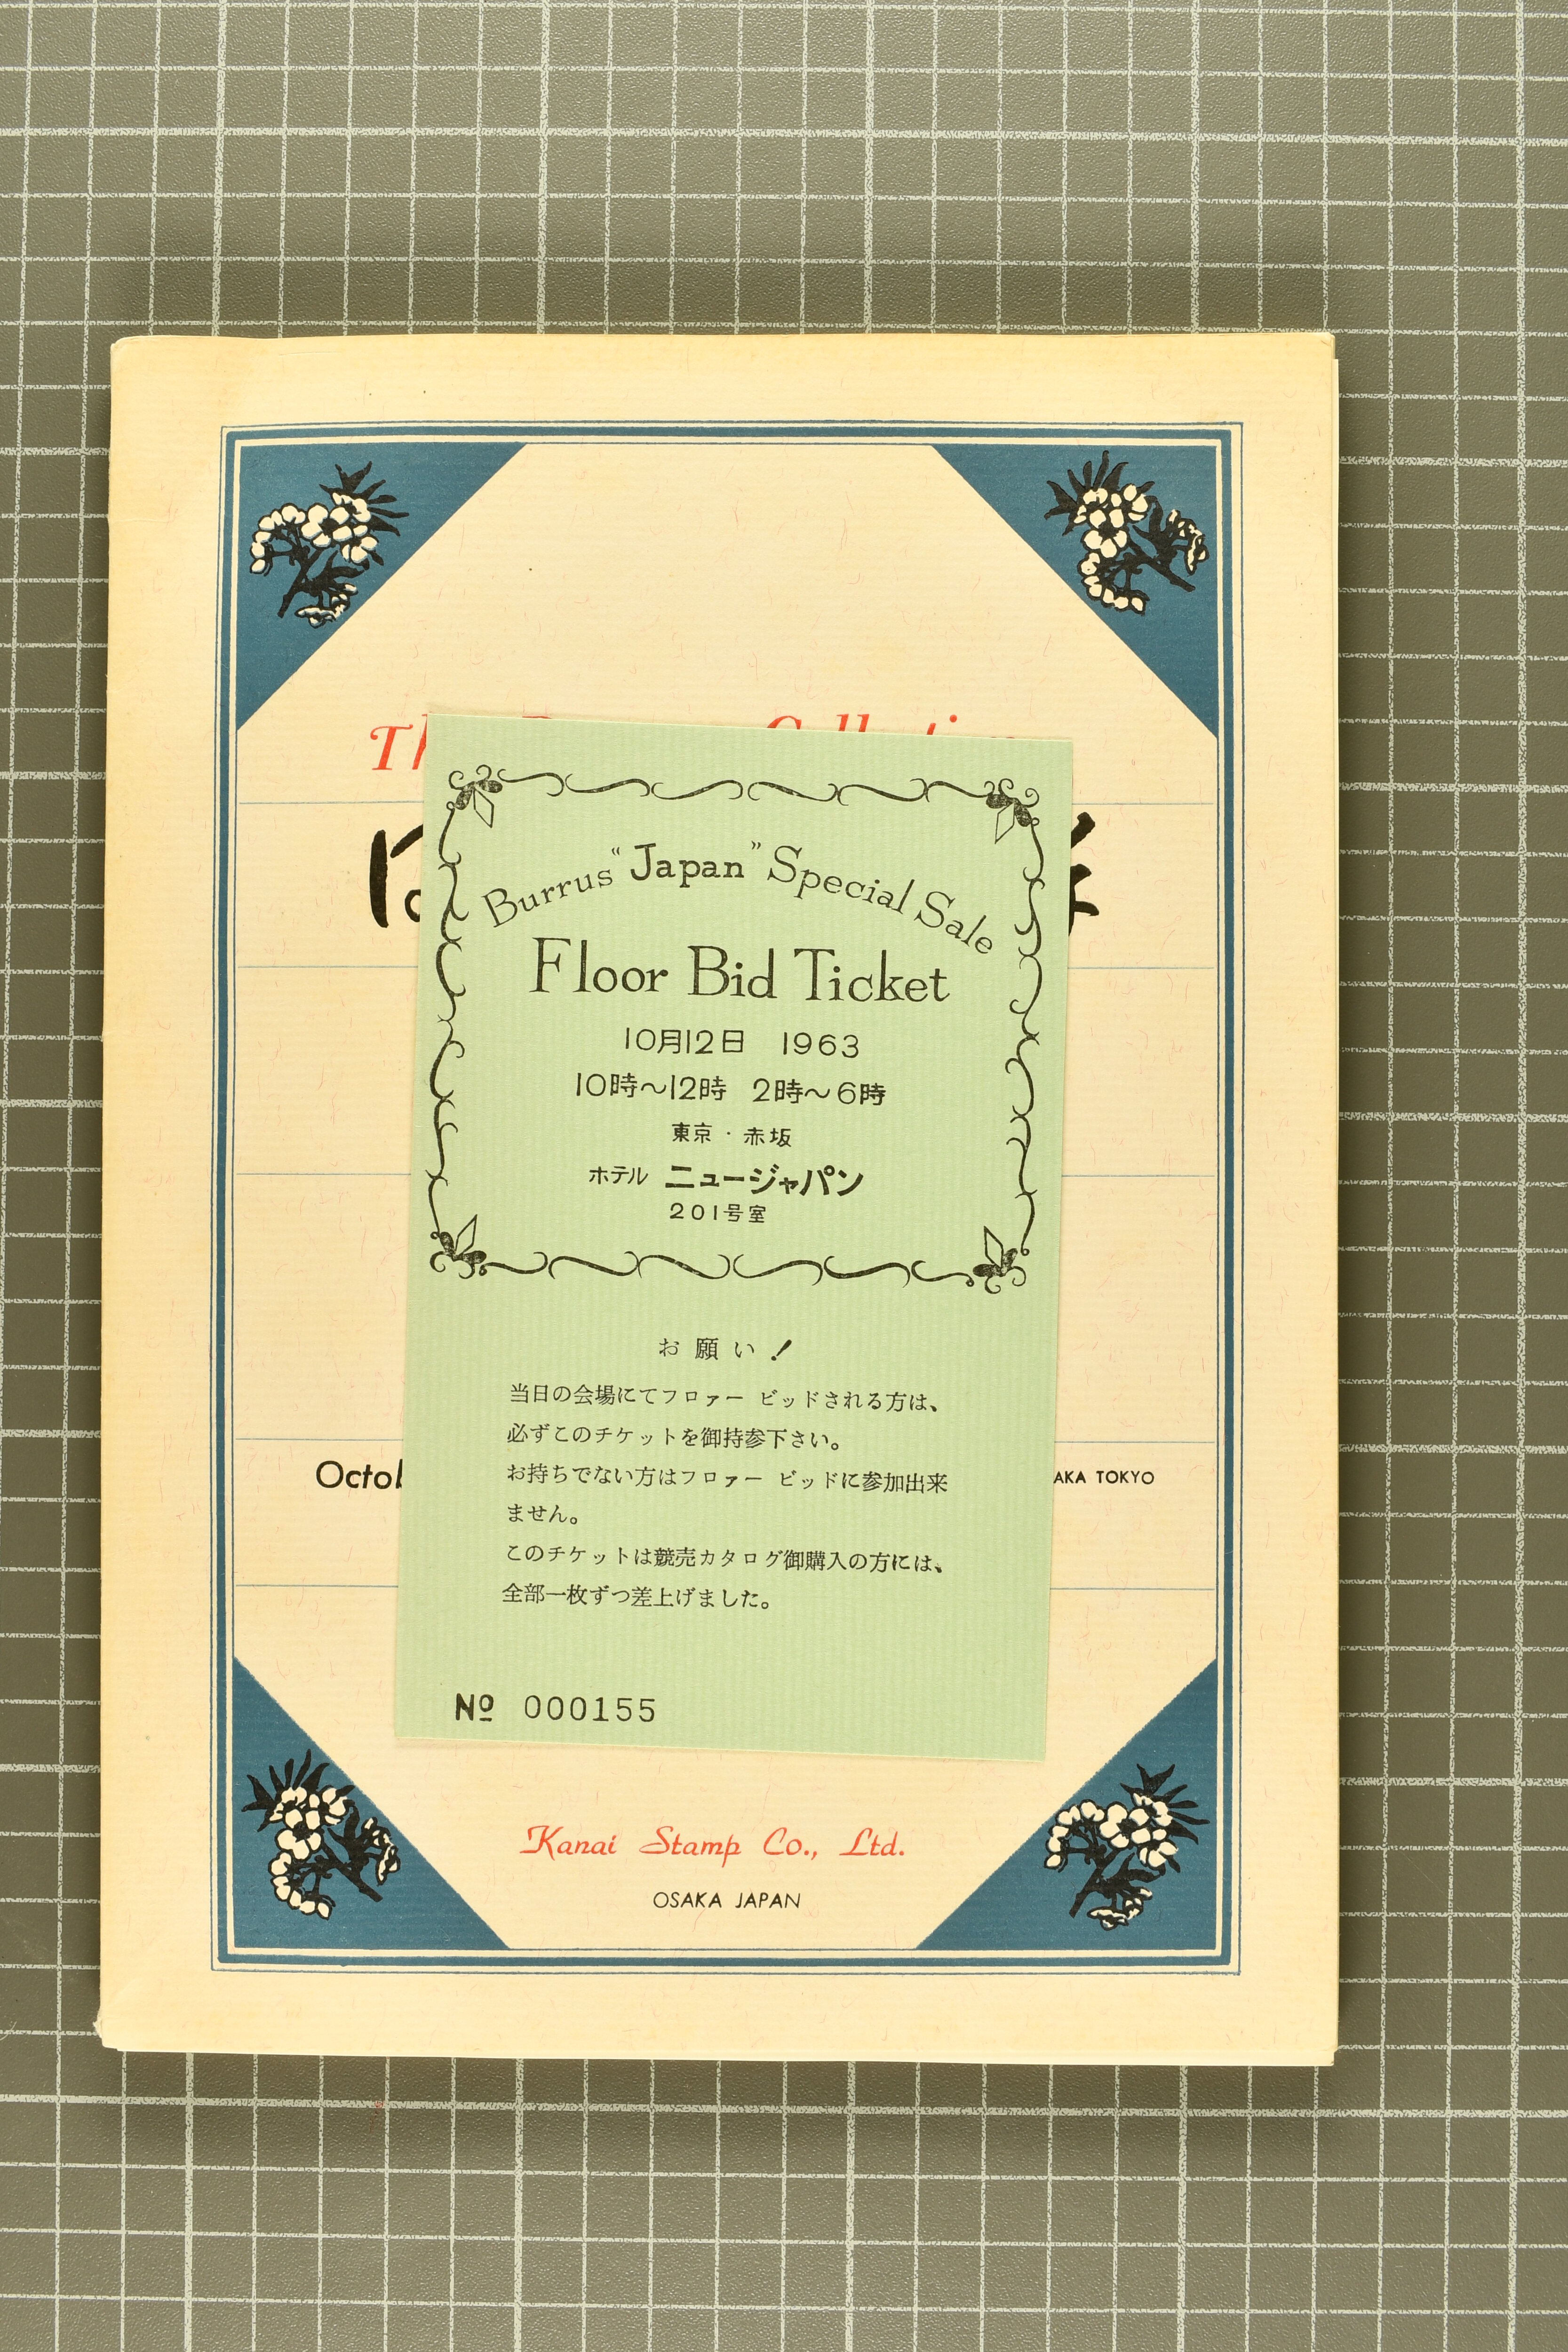 Burrus "Japan" Special Sale
Floor Bid Ticket
10月12日 1963
10時〜12時 2時〜6時
東京・赤坂
ホテル ニュージャパン
201号室
お願い!
当日の会場にてフロァー ビッドされる方は、
必ずこのチケットを御持参下さい。
お持ちでない方はフロァー ビッドに参加出来
ません。
このチケットは競売カタログ御購入の方には、
全部一枚ずつ差上げました。
No 000155
TOKYO
Kanai Stamp Co., Ltd.
OSAKA JAPAN